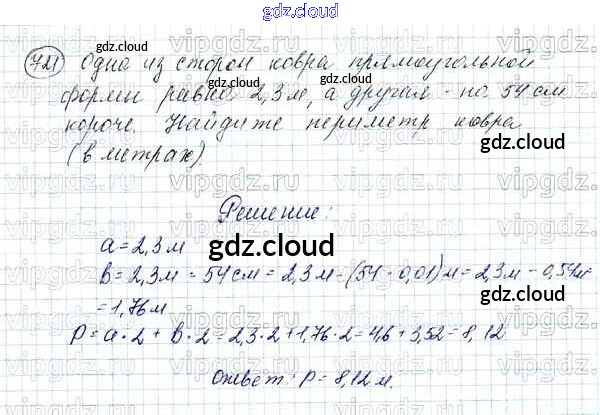 gdz.cloud
721 Одна из сторон ковра прямоугольной
gdz.cloud
формы равна 2,3 м, а другая - на 54 см
gdz.cloud
короче. Найдите периметр ковра
(в метрах).
gdz.cloud
vipgdz.ru
Решение:
a = 2,3 м
gdz.cloud
в = 2,3 м = 54 см = 2,3 м - (54 · 0,01) м = 2,3 м - 0,54 м
= 1,76 м
gdz.cloud
P = a · 2 + в · 2 = 2,3 · 2 + 1,76 · 2 = 4,6 + 3,52 = 8,12
Ответ: P = 8,12 м.
gdz.cloud